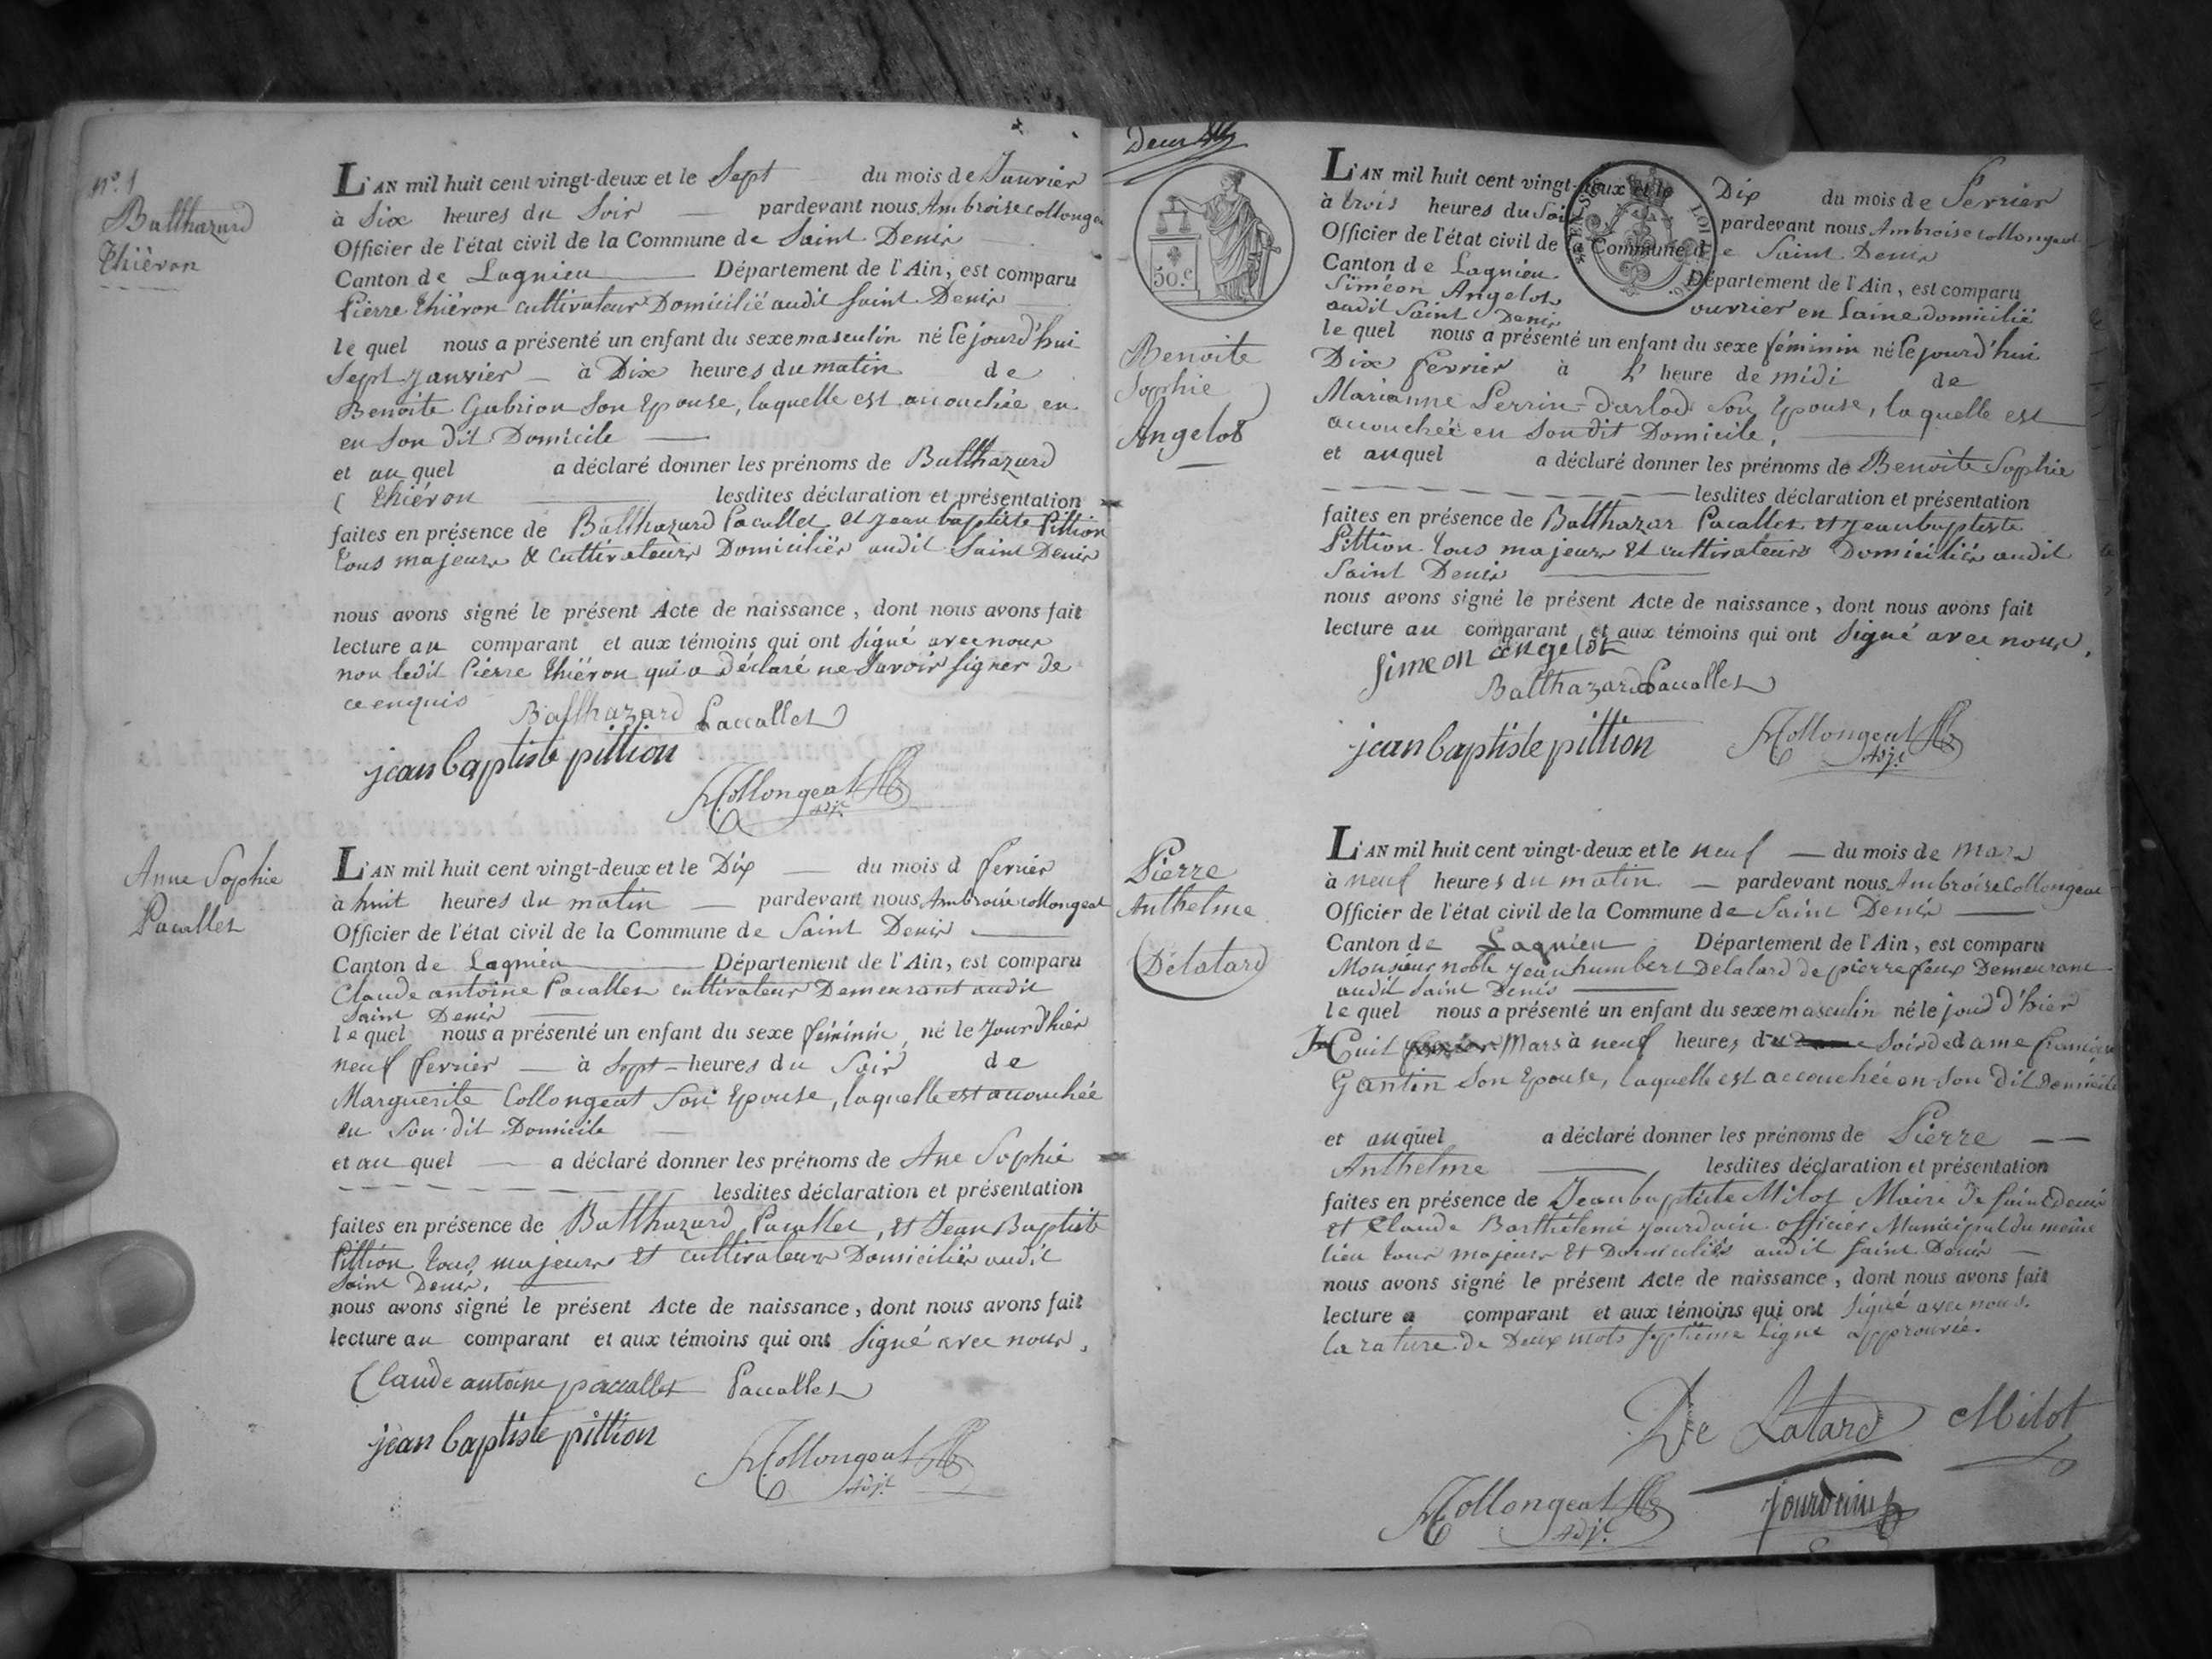 nº. 1
Balthazard
Thiévon
L'AN mil huit cent vingt-deux et le Sept du mois de Janvier
à Six heures du Soir — pardevant nous Ambroise Collongea
Officier de l'état civil de la Commune de Saint Denis
Canton de Lagnieu Département de l'Ain, est comparu
Pierre Thiévon cultivateur Domicilié audit Saint Denis
le quel nous a présenté un enfant du sexe masculin né le jourd'hui
Sept Janvier — à Dix heures du matin de
Benoite Gabrion Son Epouse, laquelle est accouchée en
en Son dit Domicile —
et au quel a déclaré donner les prénoms de Balthazard
( Thiévon — lesdites déclaration et présentation
faites en présence de Balthazard Paccallet et Jean baptiste Pittion
tous majeurs & cultivateurs Domiciliés audit Saint Denis
nous avons signé le présent Acte de naissance, dont nous avons fait
lecture au comparant et aux témoins qui ont Signé avec nous
non ledit Pierre Thiévon qui a déclaré ne Savoir signer de
ce enquis
Balthazard Paccallet
jean baptiste pittion
Collongeat
adjt
Anne Sophie
Pacallet
L'AN mil huit cent vingt-deux et le Dix — du mois d fevrier
à huit heures du matin — pardevant nous Ambroise Collongeat
Officier de l'état civil de la Commune de Saint Denis
Canton de Lagnieu Département de l'Ain, est comparu
Claude antoine Pacallet cultivateur Demeurant audit
Saint Denis —
le quel nous a présenté un enfant du sexe féminin, né le Jourd'hier
neuf fevrier — à Sept heures du Soir de
Marguerite Collongeat Son Epouse, laquelle est accouchée
en Son dit Domicile
et au quel — a déclaré donner les prénoms de Ane Sophie
lesdites déclaration et présentation
faites en présence de Balthazard Pacallet, et Jean Baptiste
Pittion tous majeurs et cultivateurs Domiciliés audit
Saint Denis.
nous avons signé le présent Acte de naissance, dont nous avons fait
lecture au comparant et aux témoins qui ont Signé avec nous,
Claude antoine paccallet Paccallet
jean baptiste pittion
Collongeat
adjt
Deux
50.c
Benoite
Sophie
Angelot
L'AN mil huit cent vingt-deux et le Dix du mois de Fevrier
à trois heures du Soir pardevant nous Ambroise Collongeat
Officier de l'état civil de la Commune de Saint Denis
Canton de Lagnieu Département de l'Ain, est comparu
Siméon Angelot ouvrier en laine domicilié
audit Saint Denis
le quel nous a présenté un enfant du sexe féminin né le jourd'hui
Dix fevrier à L' heure de midi de
Marianne Perrin-darlod Son Epouse, laquelle est
accouchée en Son dit Domicile,
et au quel a déclaré donner les prénoms de Benoite Sophie
lesdites déclaration et présentation
faites en présence de Balthazar Pacallet et Jean baptiste
Pittion tous majeurs et cultivateurs Domiciliés audit
Saint Denis
nous avons signé le présent Acte de naissance, dont nous avons fait
lecture au comparant et aux témoins qui ont Signé avec nous,
Simeon angelot
Balthazard Paccallet
jean baptiste pittion Collongeat
adjt
Pierre
Anthelme
Délatard
L'AN mil huit cent vingt-deux et le neuf — du mois de mars
à neuf heures du matin — pardevant nous Ambroise Collongeat
Officier de l'état civil de la Commune de Saint Denis
Canton de Lagnieu Département de l'Ain, est comparu
Monsieur noble Jean humbert Delatard de pierre feux Demeurant
audit Saint Denis
le quel nous a présenté un enfant du sexe masculin né le jourd'hier
huit Mars à neuf heures du Soir de dame françoise
Gantin Son Epouse, laquelle est accouchée en Son dit Domicile
et au quel a déclaré donner les prénoms de Pierre — —
Anthelme — lesdites déclaration et présentation
faites en présence de Jean baptiste Milot Maire de Saint denis
et Claude Barthelemi Jourdain officier Municipal du même
lieu tous majeurs et Domiciliés audit Saint Denis —
nous avons signé le présent Acte de naissance, dont nous avons fait
lecture a comparant et aux témoins qui ont Signé avec nous.
la rature de Deux mots septième ligne approuvée.
De Latard Milot
Collongeat Jourdain
adjt